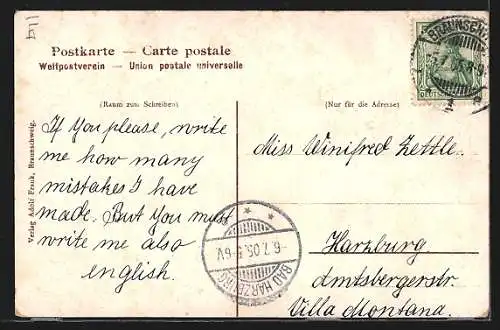 Postkarte — Carte postale
Weltpostverein — Union postale universelle
(Raum zum Schreiben)
(Nur für die Adresse)
If you please, write
me how many
mistakes I have
made. But you must
write me also
english.
Verlag Adolf Frank, Braunschweig.
Miss Winifred Zettle.
Harzburg
Amtsbergerstr.
Villa Montana.
BRAUNSCHW
-6.7.05.5-6V.
BAD HARZBURG